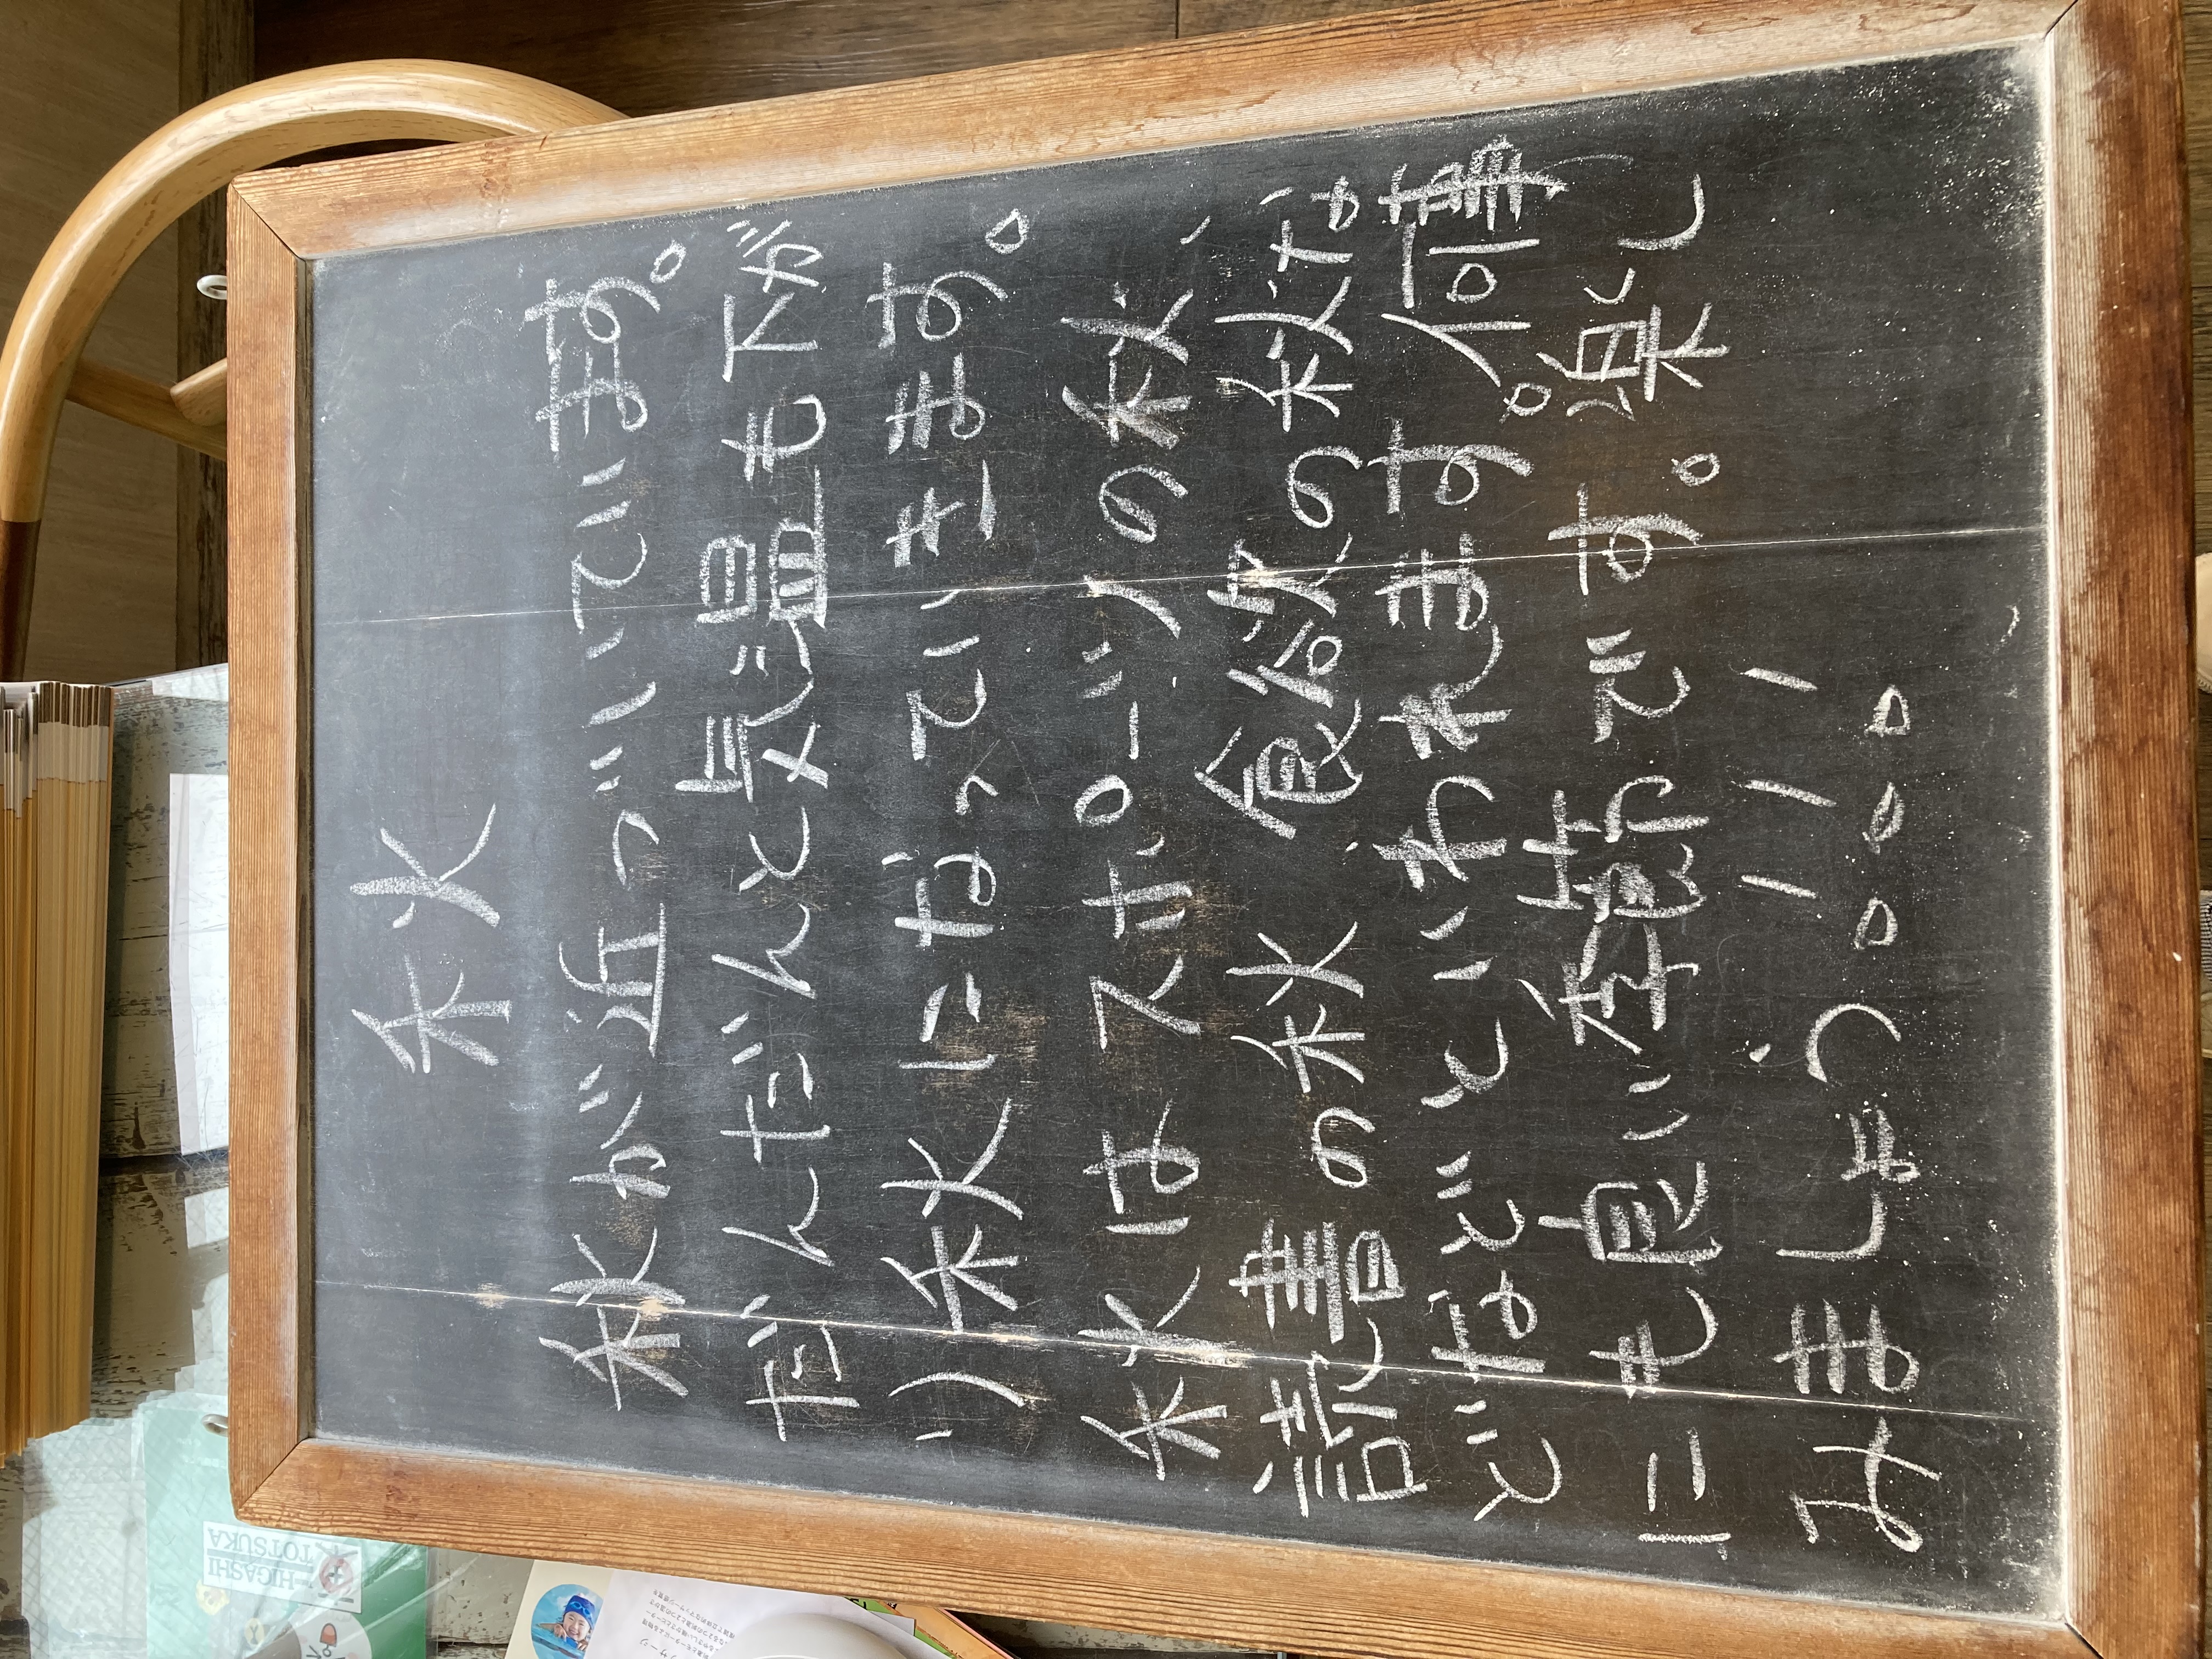 秋
秋が近づいています。
だんだんと気温も下が
り秋になっていきます。
秋はスポーツの秋、
読書の秋、食欲の秋な
どなどといわれます。何事
にも良い季節です。楽し
みましょう!!!
HIGASHI
TOTSUKA